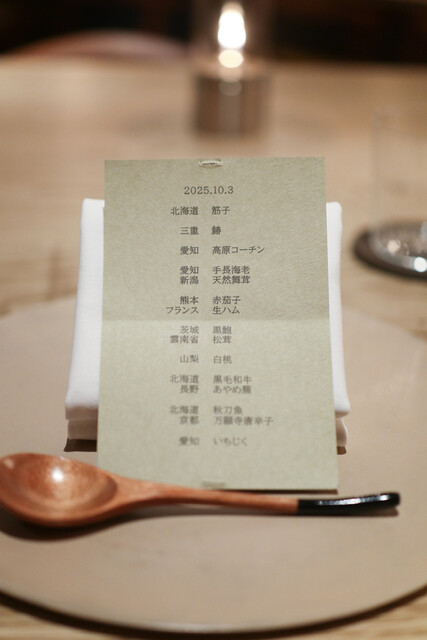 2025.10.3
北海道 筋子
三重 鰆
愛知 高原コーチン
愛知 手長海老
新潟 天然舞茸
熊本 赤茄子
フランス 生ハム
茨城 黒鮑
雲南省 松茸
山梨 白桃
北海道 黒毛和牛
長野 あやめ蕪
北海道 秋刀魚
京都 万願寺唐辛子
愛知 いちじく